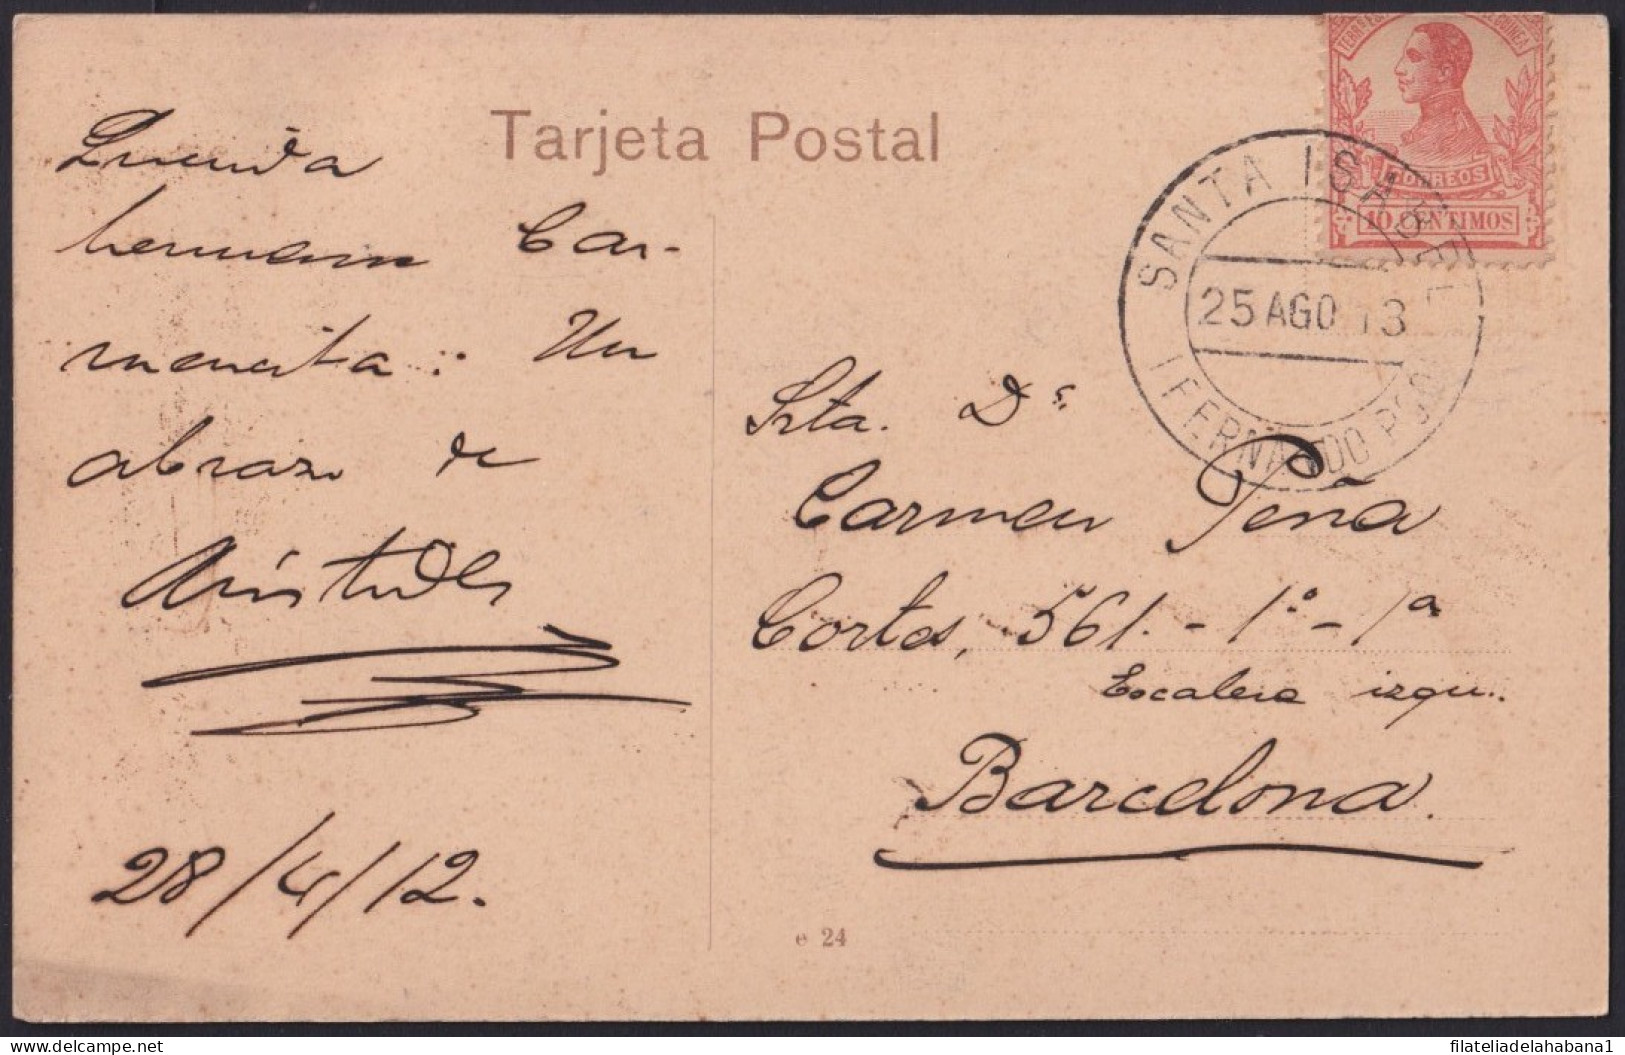 Tarjeta Postal
Querida
hermana Car-
mencita: Un
abrazo de
Arístides
28/4/12.
CORREOS
10 CENTIMOS
SANTA ISABEL
25 AGO 13
FERNANDO POO
Srta. Dª
Carmen Peña
Cortes, 561.-1º-1ª
Escalera izqu..
Barcelona.
e 24
filateliadelahabana1
delcampe.net